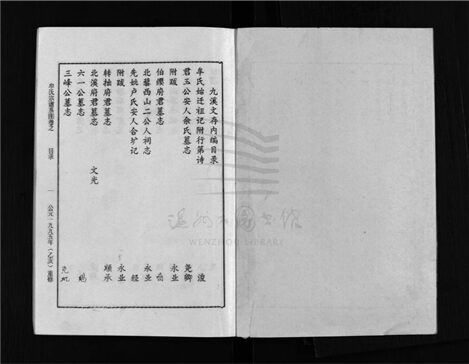 九溪文存内编目录
牟氏始迁祖记附行第诗 浚
君玉公安人余氏墓志 尧卿
附跋 永亚
伯缨府君墓志
北麓西山二公人祠志 永亚
先妣卢氏安人合圹记 经
附跋 永亚
转抽府君墓志 顺承
北溪府君墓志 文光
六一公墓志
三峰公墓志
牟氏宗谱系图卷之 目录 一 公元一九九五年(乙亥)重修
温州市图书馆
WENZHOU LIBRARY